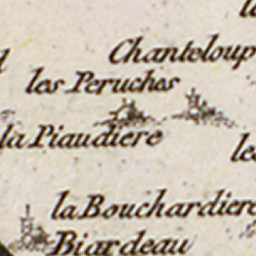 Chanteloup
les Peruches
la Piaudiere
la Bouchardiere
Biardeau